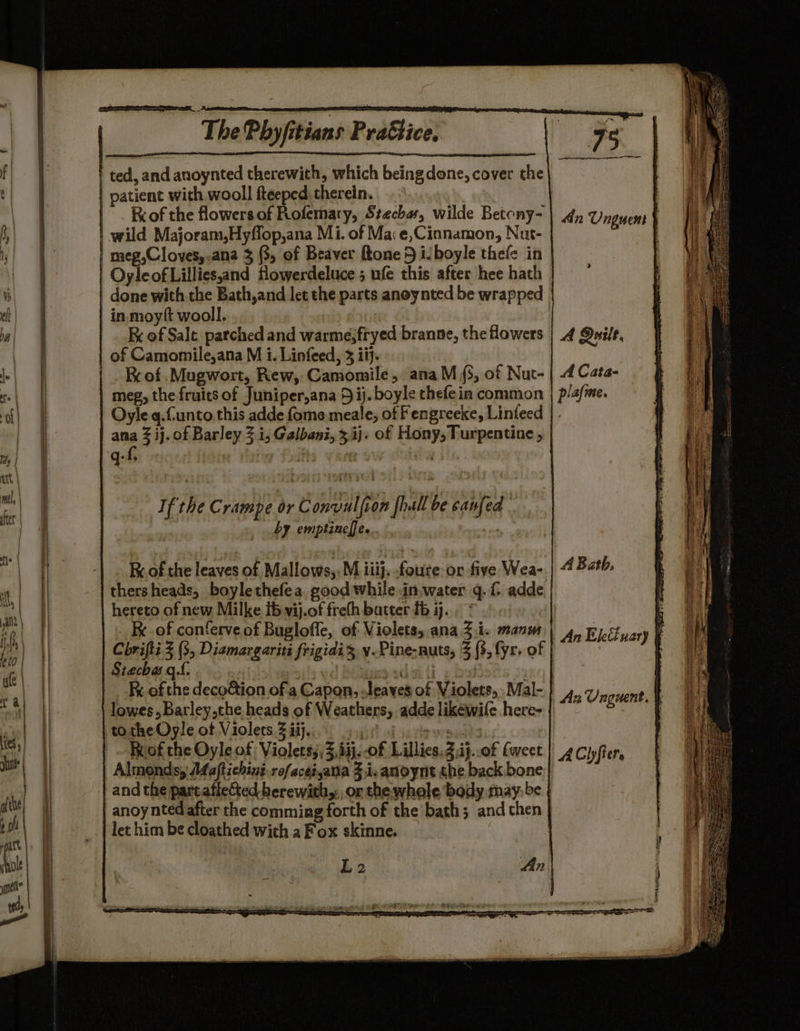 The Phyſitians Practice. 75
ted, and anoynted therewith, which being done, cover the
patient with wooll ſteeped therein.
℞ of the flowers of Roſemary, Stæchas, wilde Betony- An Unguent
wild Majoram, Hyſſop, ana M i. of Mace, Cinnamon, Nut-
meg, Cloves, ana ʒ ß, of Beaver ſtone ℈ i. boyle theſe in
Oyle of Lillies, and flowerdeluce; uſe this after hee hath
done with the Bath, and let the parts anoynted be wrapped
in moyſt wooll.
℞ of Salt parched and warme, fryed branne, the flowers A Quilt.
of Camomile, ana M i. Linſeed, ʒ iij.
℞ of Mugwort, Rew, Camomile, ana M ß, of Nut- A Cata-
meg, the fruits of Juniper, ana ℈ ij. boyle theſe in common plaſme.
Oyle q.ſ. unto this adde ſome meale, of Fengreeke, Linſeed
ana ℥ ij. of Barley ℥ i, Galbani, ʒ ij. of Hony, Turpentine,
q.ſ.
If the Crampe or Convulſion ſhall be cauſed
by emptineſſe.
℞ of the leaves of Mallows, M iiij. foure or five Wea- A Bath,
thers heads, boyle theſe a good while in water q.ſ. adde
hereto of new Milke ℔ vij. of freſh butter ℔ ij.
℞ of conſerve of Bugloſſe, of Violets, ana ℥ i. manus An Electuary
Chriſti ℥ ß, Diamargariti frigidi ʒ v. Pine-nuts, ℥ ß, ſyr. of
Stæchas q.ſ.
℞ of the decoction of a Capon, leaves of Violets, Mal- An Unguent.
lowes, Barley, the heads of Weathers, adde likewiſe here-
to the Oyle of Violets ℥ iij.
℞ of the Oyle of Violets, ℥ iij. of Lillies ℥ ij. of ſweet A Clyſter.
Almonds, Maſtichini roſacei, ana ℥ i. anoynt the back bone
and the part affected herewith, or the whole body may be
anoynted after the comming forth of the bath; and then
let him be cloathed with a Fox skinne.
L 2 An